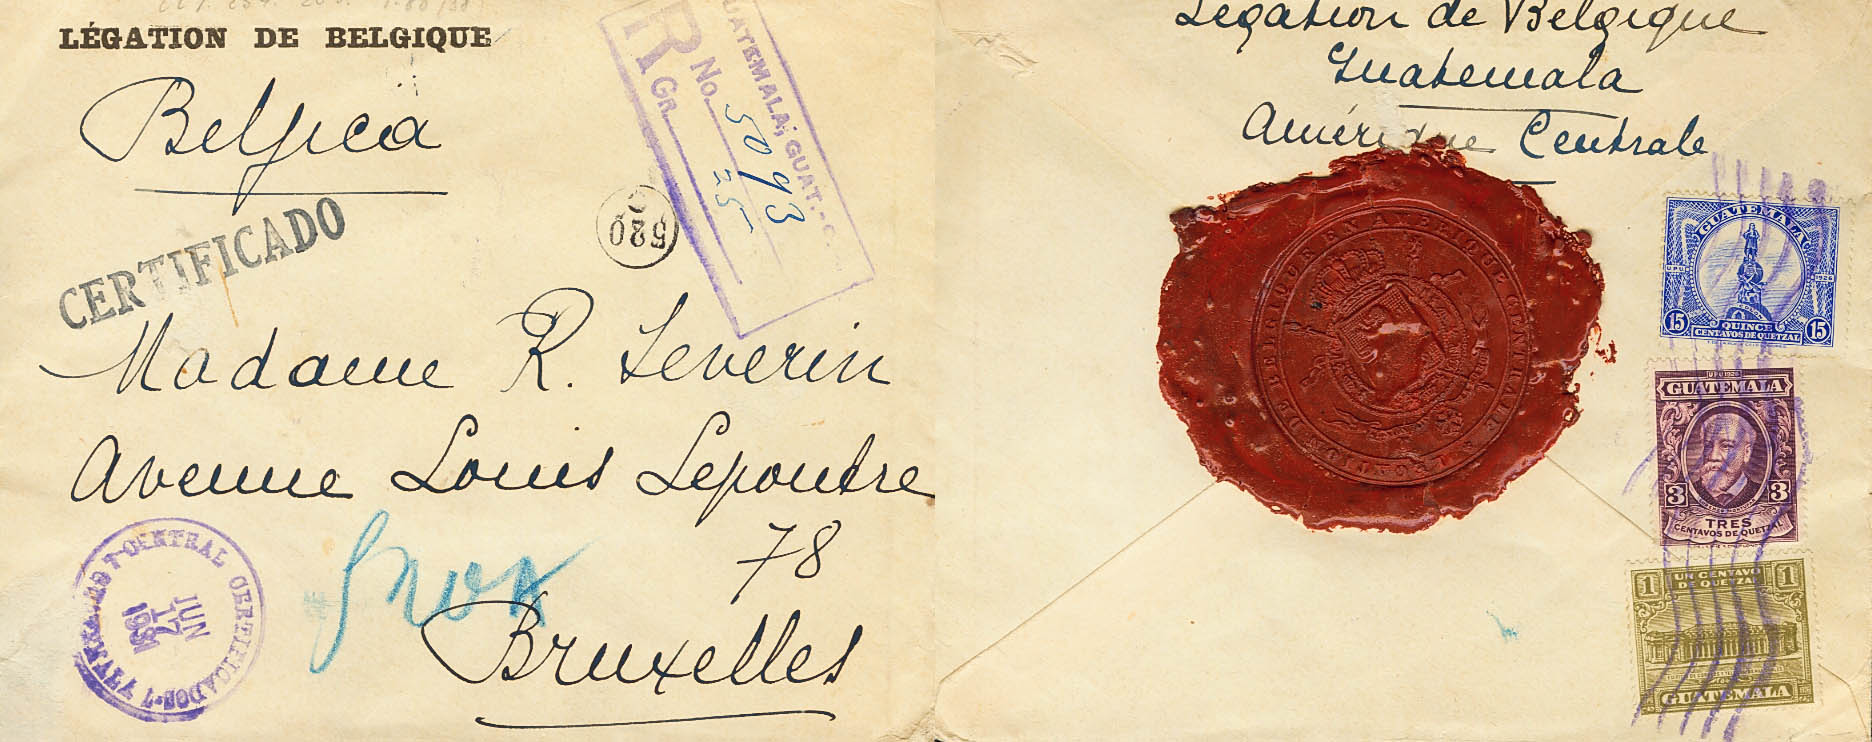 LÉGATION DE BELGIQUE
Belgica
CERTIFICADO
GUATEMALA, GUAT.-C.
R No. 5093
GR. 25
520
Madame R. Severin
Avenue Louis Lepoutre
78
Bruxelles
CENTRAL CERTIFICADOS
GUATEMALA
JUN
12
1931
Légation de Belgique
Guatemala
Amérique Centrale
LEGATION DE BELGIQUE EN AMERIQUE CENTRALE
GUATEMALA
U.P.U. 1926
15 QUINCE 15
CENTAVOS DE QUETZAL
U.P.U. 1926
GUATEMALA
3 3
TRES
CENTAVOS DE QUETZAL
1 UN CENTAVO 1
DE QUETZAL
GUATEMALA